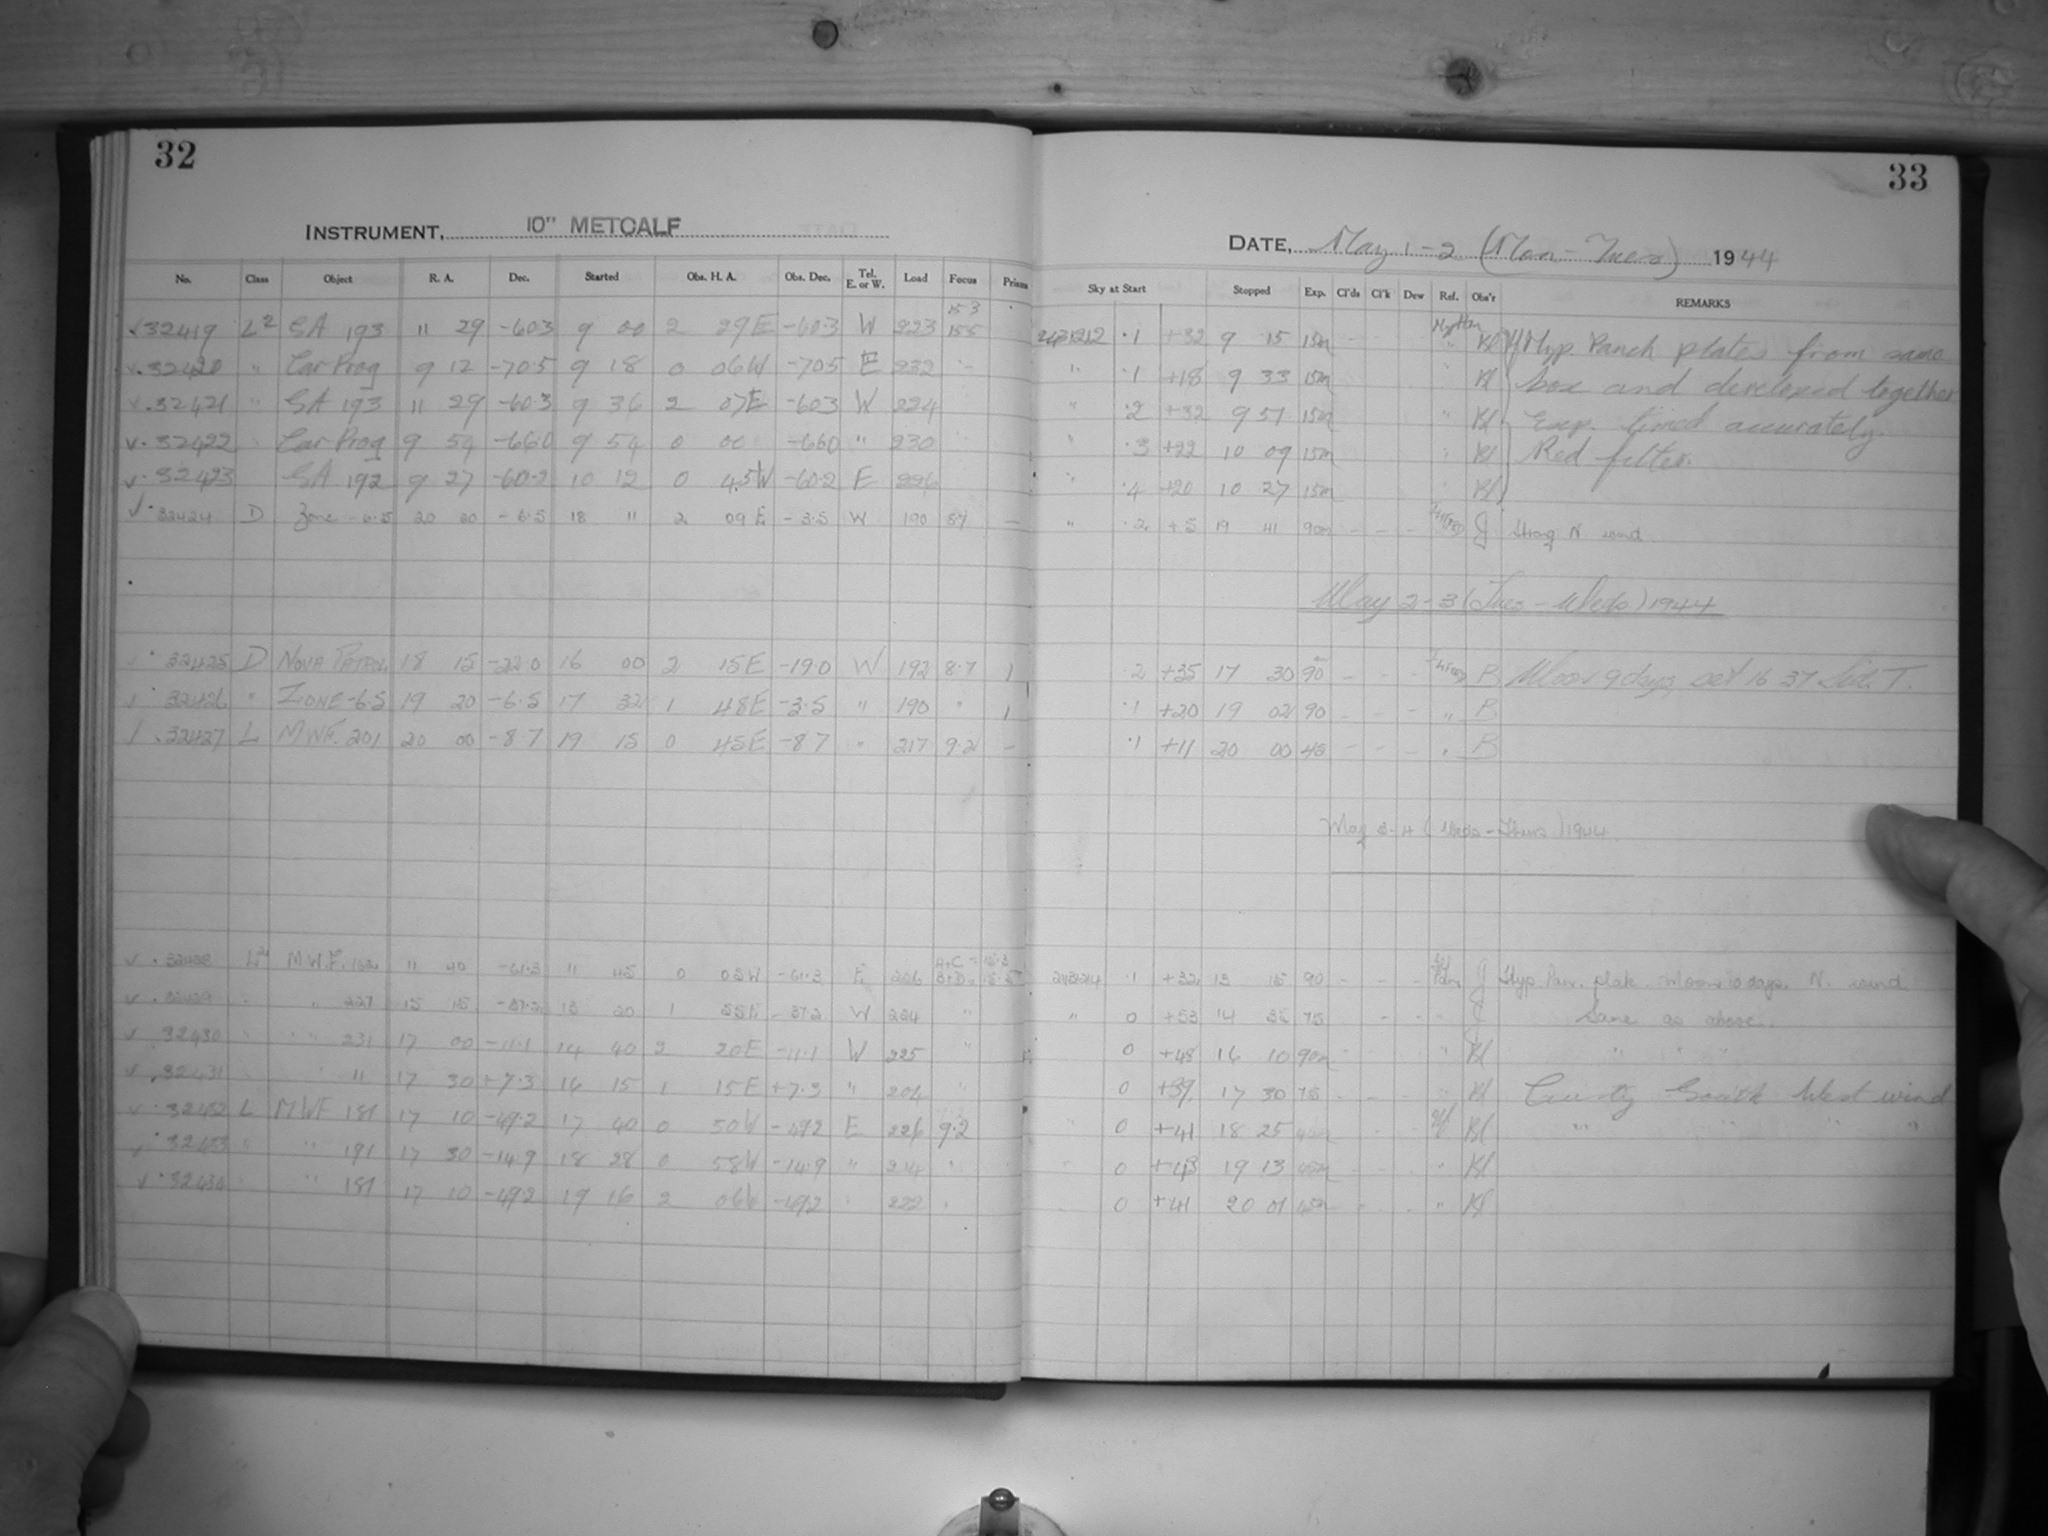 32
INSTRUMENT, 10" METCALF
No. Class Object R. A. Dec. Started Obs. H. A. Obs. Dec. Tel. E. or W. Load Focus Prism
15.3
32419 L2 SA 193 11 29 -60.3 9 00 2 29 E -60.3 W 223 15.5
32420 " Car Prog 9 12 -70.5 9 18 0 06 W -70.5 E 232
32421 " SA 193 11 29 -60.3 9 36 2 07 E -60.3 W 224
32422 Car Prog 9 54 -66.0 9 54 0 00 -66.0 " 230
32423 SA 192 9 27 -60.2 10 12 0 45 W -60.2 E 226
32424 D Zone -6.5 20 20 -6.5 18 11 2 09 E -3.5 W 190 8.7 —
32425 D NOVA PATROL 18 15 -22.0 16 00 2 15 E -19.0 W 192 8.7 1
32426 " ZONE -6.5 19 20 -6.5 17 32 1 48 E -3.5 " 190 " 1
32427 L MWF. 201 20 00 -8.7 19 15 0 45 E -8.7 " 217 9.2 —
A+C = 15.3
32428 M.W.F. 11 40 -61.3 11 45 0 05 W -61.3 E 206 B+D = 15.5
32429 " 227 15 15 -37.2 13 20 1 55 E -37.2 W 224 "
32430 " " 231 17 00 -11.1 14 40 2 20 E -11.1 W 225 "
32431 11 17 30 +7.3 16 15 1 15 E +7.3 " 204 "
32432 L MWF 187 17 10 -49.2 17 40 0 50 W -49.2 E 226 9.2
32433 " " 191 17 30 -14.9 18 28 0 58 W -14.9 " 214
32434 " 187 17 10 -49.2 19 16 2 06 W -49.2 222
33
DATE, May 1-2 (Mon - Tues) 1944
Sky at Start Stopped Exp. Cl'ds Cl'k Dew Ref. Obs'r REMARKS
.1 +32 9 15 15m Kl Hyp. Panch plates from same
" .1 +18 9 33 15m " Kl box and developed together
" .2 +32 9 51 15m " Kl Exp. timed accurately.
" .3 +22 10 09 15m " Kl Red filter.
" .4 +20 10 27 15m Kl
" .2 +5 19 41 90m - - - J Strong N. wind.
May 2-3 (Tues - Weds) 1944
.2 +35 17 30 90 - - - B Moon 9 days, set 16 37 Sid. T.
.1 +20 19 02 90 - - - " B
.1 +11 20 00 45 - - - " B
May 3-4 (Weds - Thurs) 1944
.1 +32 13 15 90 - - - J Hyp. Pan. plate. Moon 10 days. N. wind
" 0 +53 14 35 75 - - J Same as above.
0 +48 16 10 90m " Kl " " "
0 +39 17 30 75 " Kl Gusty South West wind
0 +41 18 25 45m Kl " " "
0 +43 19 13 45m " Kl
0 +41 20 01 45m " Kl